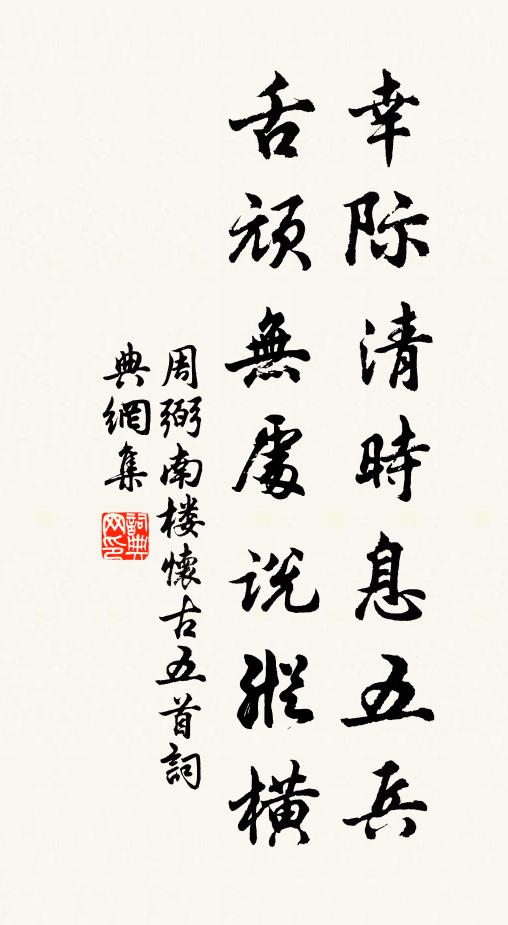 幸际清時息五兵
舌頑無處説縱横
周弼南楼懷古五首詞
典網集
詞典
网印